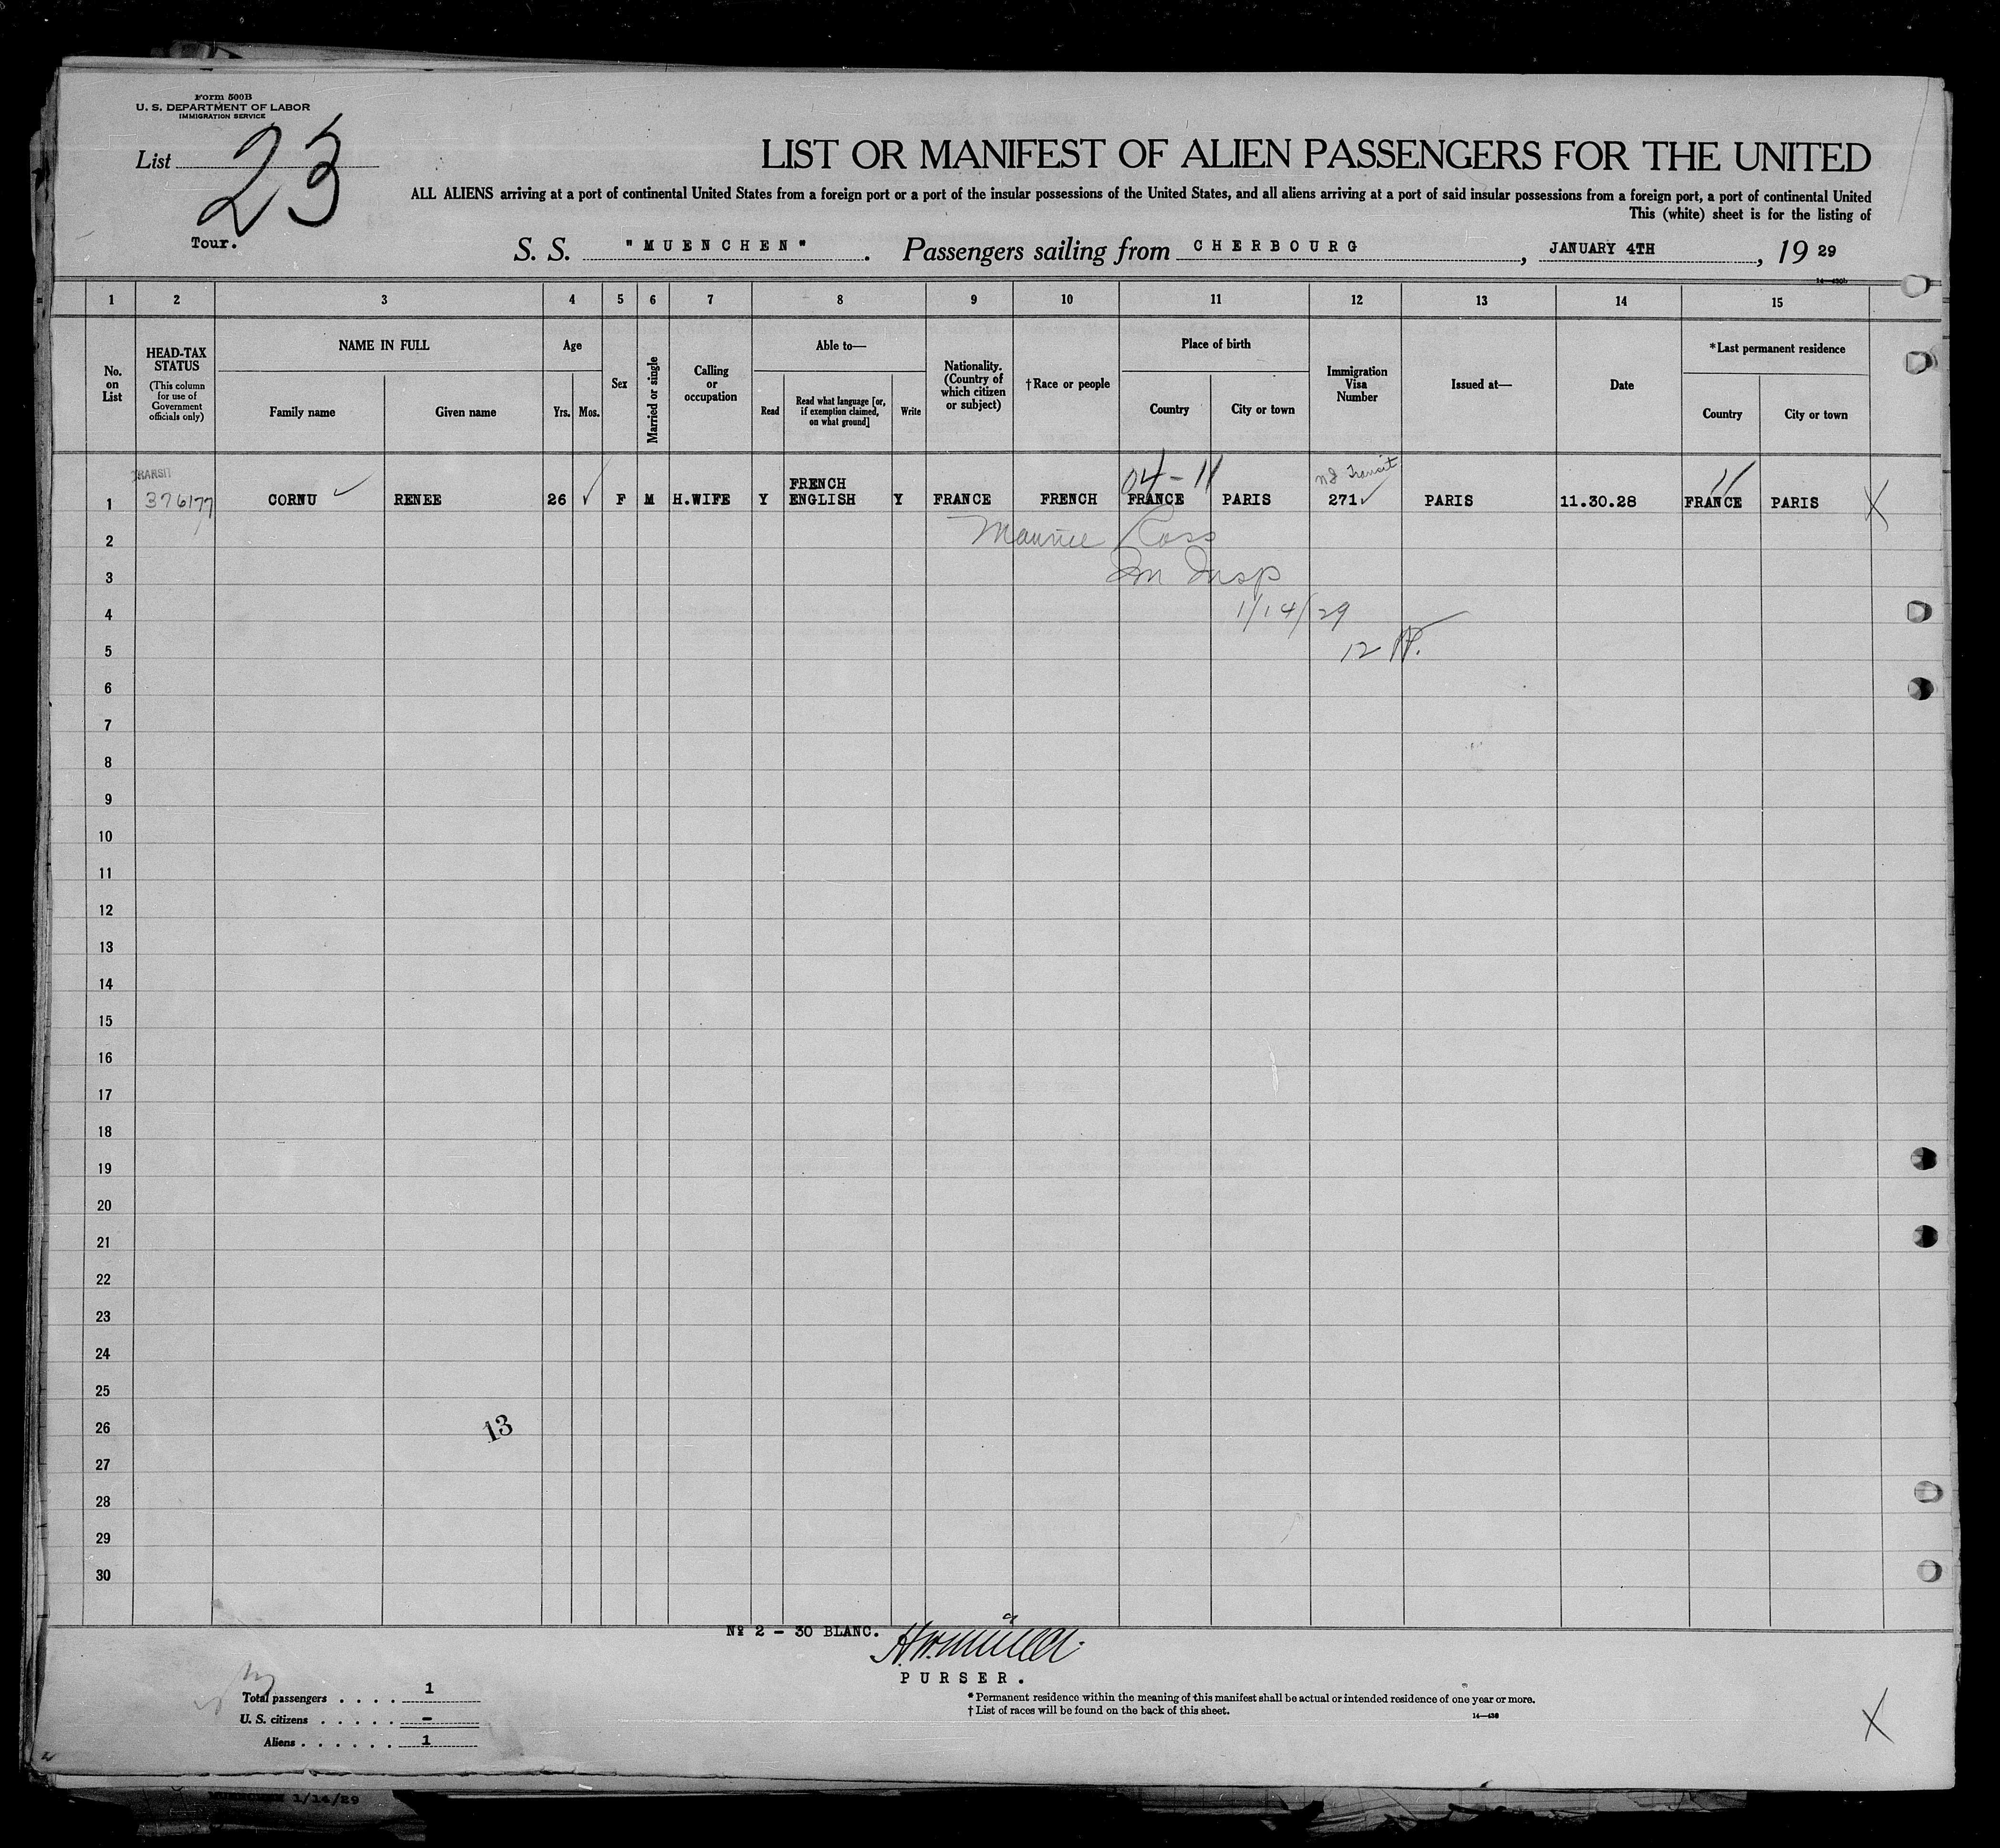 Form 500B
U. S. DEPARTMENT OF LABOR
IMMIGRATION SERVICE
List 23
LIST OR MANIFEST OF ALIEN PASSENGERS FOR THE UNITED
ALL ALIENS arriving at a port of continental United States from a foreign port or a port of the insular possessions of the United States, and all aliens arriving at a port of said insular possessions from a foreign port, a port of continental United
This (white) sheet is for the listing of
Tour.
S. S. "MUENCHEN". Passengers sailing from CHERBOURG, JANUARY 4TH, 19 29
1 2 3 4 5 6 7 8 9 10 11 12 13 14 15
No. on List
HEAD-TAX STATUS (This column for use of Government officials only)
NAME IN FULL
Family name
Given name
Age
Yrs. Mos.
Sex
Married or single
Calling or occupation
Able to—
Read
Read what language [or, if exemption claimed, on what ground]
Write
Nationality. (Country of which citizen or subject)
†Race or people
Place of birth
Country
City or town
Immigration Visa Number
Issued at—
Date
*Last permanent residence
Country
City or town
TRANSIT
04-11
NJ Transit
11
1 376177 CORNU ✓ RENEE 26 ✓ F M H.WIFE Y FRENCH ENGLISH Y FRANCE FRENCH FRANCE PARIS 271 ✓ PARIS 11.30.28 FRANCE PARIS X
2 Maurice Ross
3 Im Insp
4 1/14/29
5 12
6
7
8
9
10
11
12
13
14
15
16
17
18
19
20
21
22
23
24
25
26
13
27
28
29
30
№ 2 - 30 BLANC.
PURSER.
Total passengers . . . . 1
U. S. citizens . . . . . -
Aliens . . . . . . 1
* Permanent residence within the meaning of this manifest shall be actual or intended residence of one year or more.
† List of races will be found on the back of this sheet.
14—430
X
MUENCHEN 1/14/29